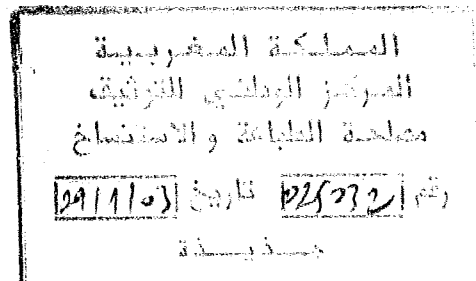 المملكة المغربية
المركز الوطني للتوثيق
مصلحة الطباعة و الاستنساخ
رقم 025232 تاريخ 29/1/03
جـــذيـــذة